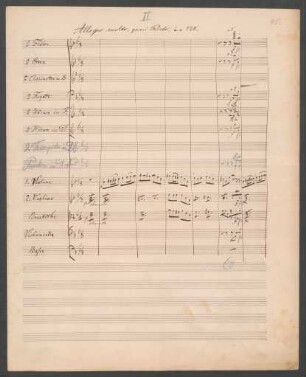 II.
Allegro molto, quasi Presto,
2 Flöten
2 Oboen
2 Clarinetten in B
2 Fagotte
2 Hörner in F
2 Hörner
2 Trompeten
Pauken
1. Violine
2. Violine
Bratsche
Violoncelle
Bässe